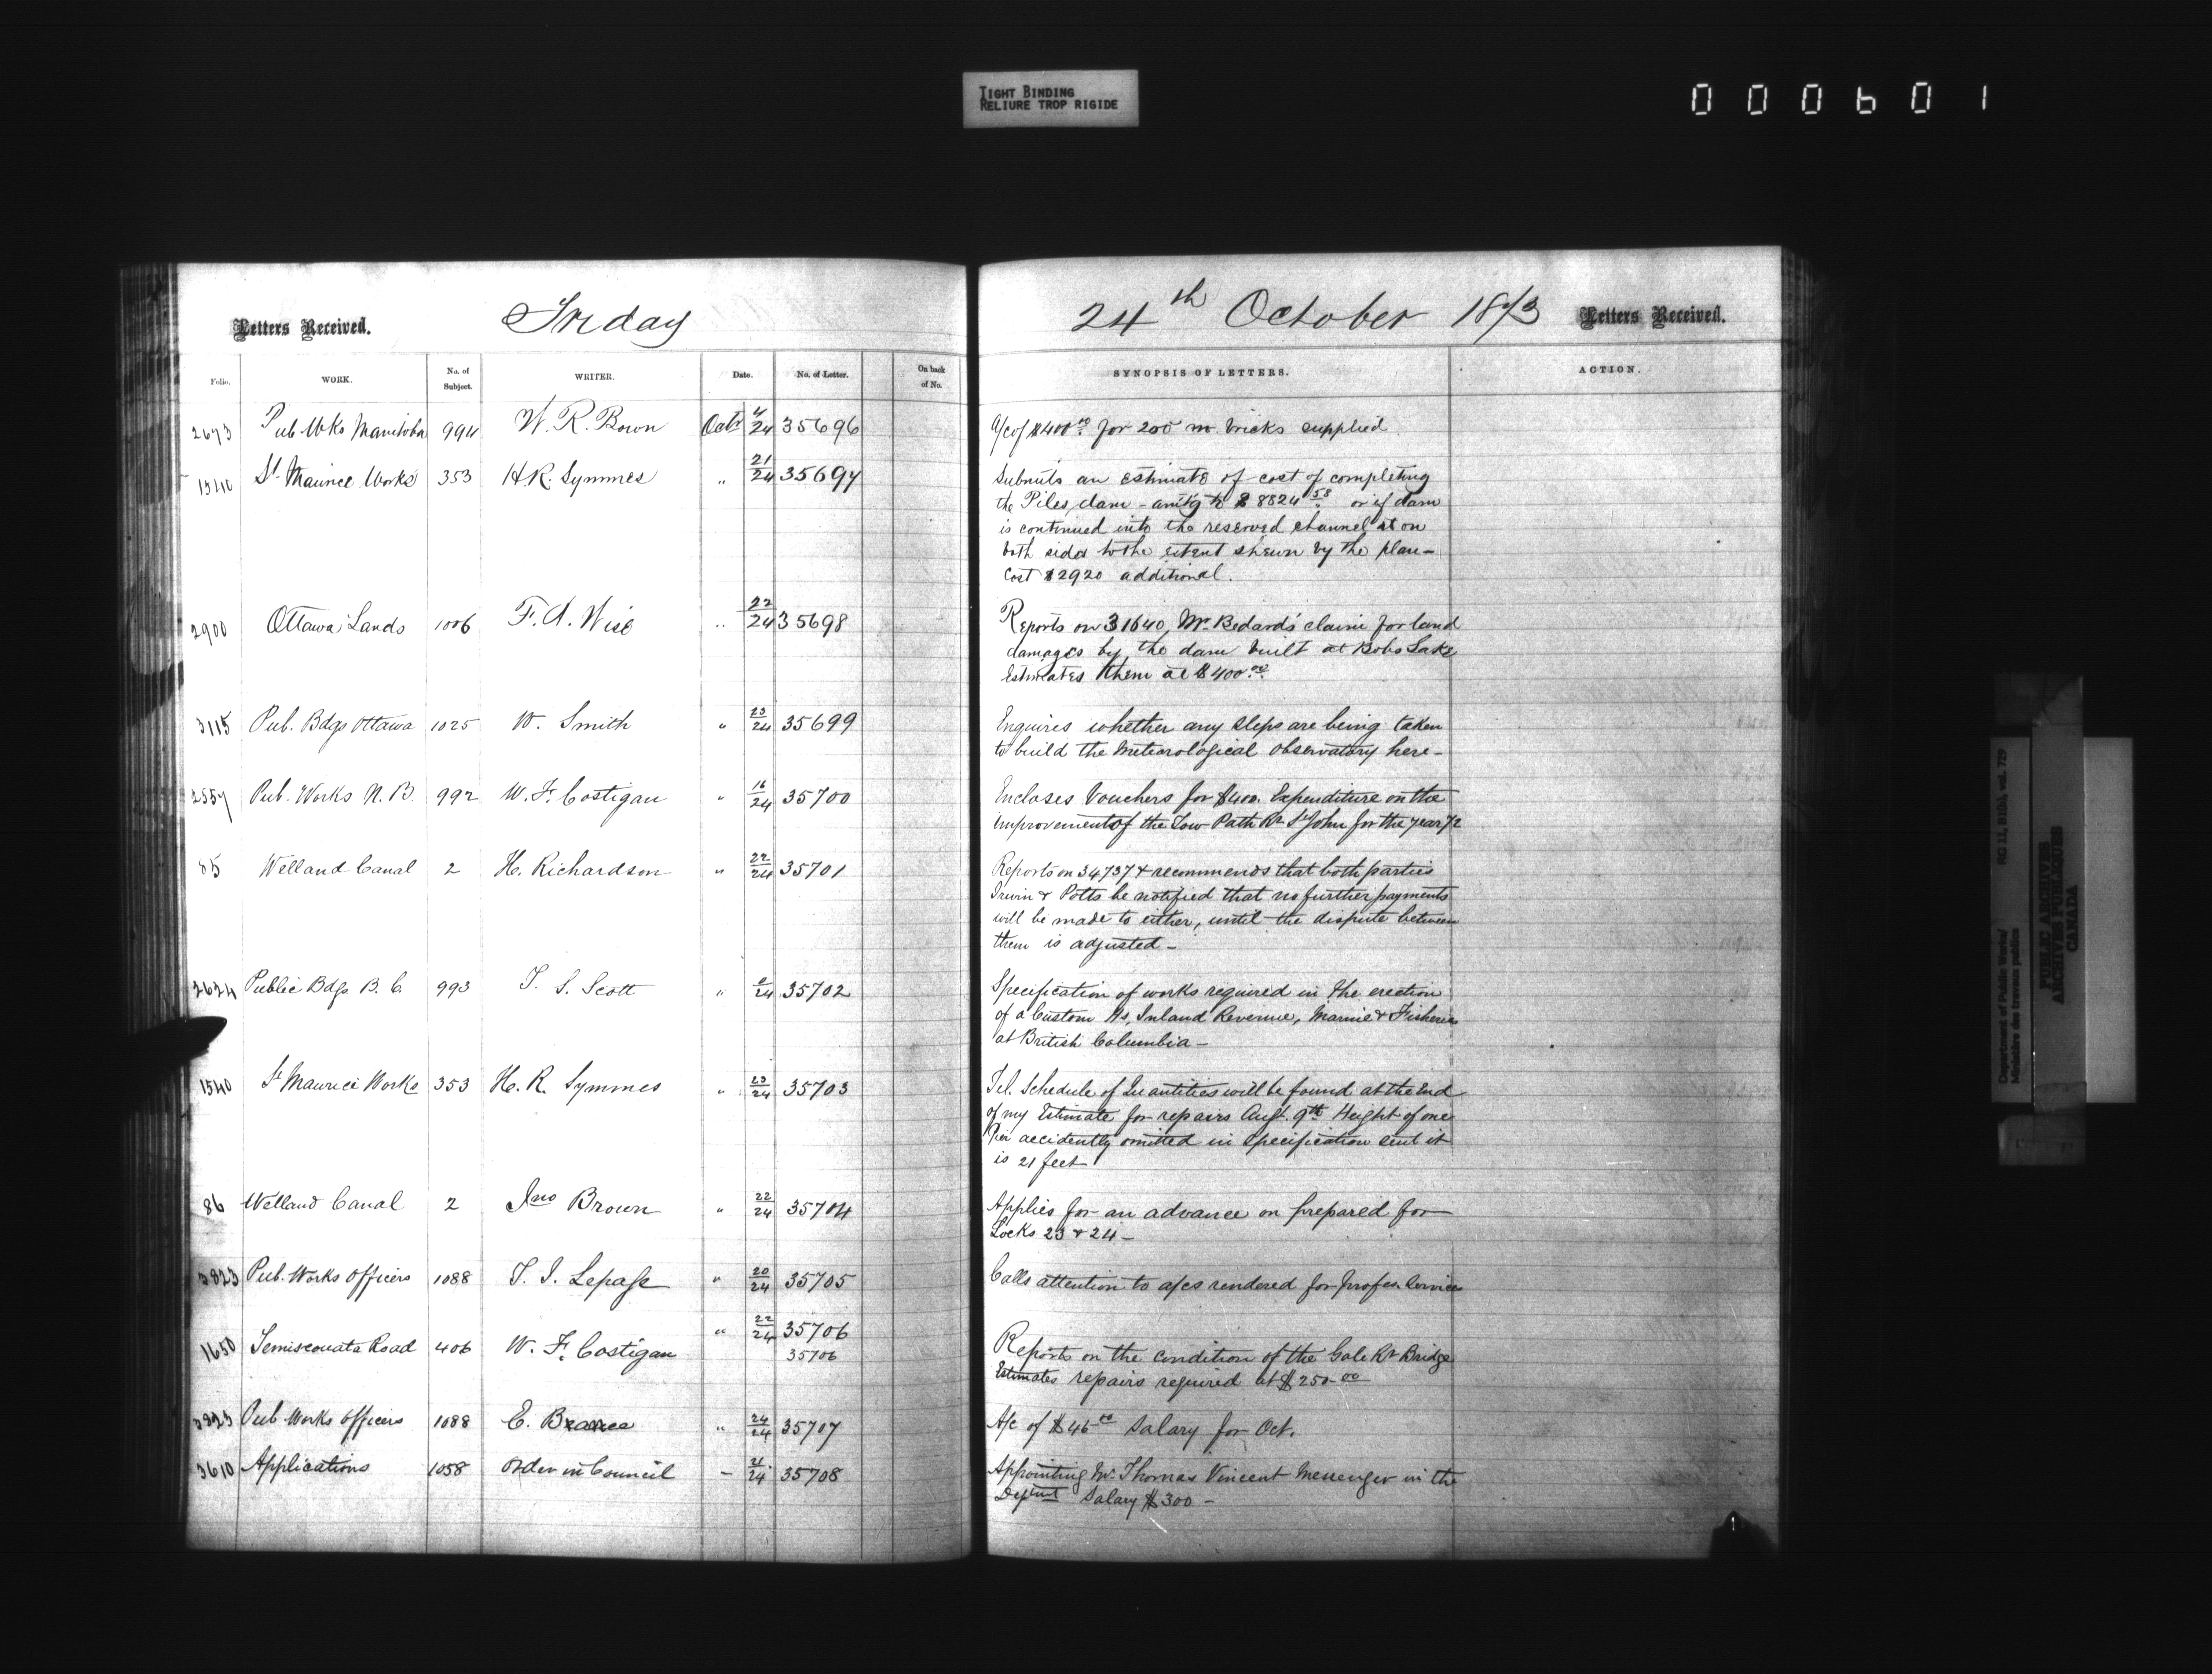 TIGHT BINDING
RELIURE TROP RIGIDE
000601
Letters Received. Friday
Folio. WORK. No. of Subject. WRITER. Date. No. of Letter. On back of No.
2673 Pub Wks Manitoba 994 W. R. Bown Octr 4/24 35696
1540 St Maurice Works 353 H.R. Symmes " 21/24 35697
2900 Ottawa Lands 1006 F. A. Wise " 22/24 35698
3115 Pub. Bdgs Ottawa 1025 W. Smith " 23/24 35699
2557 Pub. Works N. B. 992 W. F. Costigan " 16/24 35700
85 Welland Canal 2 H. Richardson " 22/24 35701
2624 Public Bdgs B. C. 993 T. S. Scott " /24 35702
1540 St Maurice Works 353 H. R. Symmes " 23/24 35703
86 Welland Canal 2 Jno Brown " 22/24 35704
3823 Pub. Works Officers 1088 T. I. Lepage " 20/24 35705
1650 Temiscouata Road 406 W. F. Costigan " 22/24 35706
35706
3823 Pub Works Officers 1088 E. " 24/24 35707
3610 Applications 1058 Order in Council - 21/24 35708
24th October 1873 Letters Received.
SYNOPSIS OF LETTERS. ACTION.
A/c of $400.00 for 200 m bricks supplied
Submits an estimate of cost of completing
the Piles dam - amtg to $8824.58 or if dam
is continued into the reserved channel at on
both sides to the extent shewn by the plan -
Cost $2920 additional.
Reports on 31640, Mr Bedard's claim for land
damages by the dam built at Bobs Lake
Estimates them at $400.00
Enquires whether any steps are being taken
to build the Meteorological Observatory here -
Encloses Vouchers for $400. Expenditure on the
improvement of the Tow Path Rr St John for the year 72
Reports on 34737 & recommends that both parties
Irwin & Potts be notified that no further payments
will be made to either, until the dispute between
them is adjusted -
Specification of works required in the erection
of a Custom Hs, Inland Revenue, Marine & Fisheries
at British Columbia -
Tel. Schedule of Quantities will be found at the End
of my Estimate for repairs Augt. 9th Height of one
Pier accidently omitted in specification sent it
is 21 feet
Applies for an advance on prepared for
Locks 23 & 24 -
Calls attention to a/cs rendered for profes. Services
Reports on the condition of the Rr Bridge
Estimates repairs required at $250.00
A/c of $46.00 Salary for Oct.
Appointing Mr Thomas Vincent Messenger in the
Deptmt Salary $300 -
Department of Public Works/
Ministère des travaux publics
RG 11, B1(b), vol. 729
PUBLIC ARCHIVES
ARCHIVES PUBLIQUES
CANADA